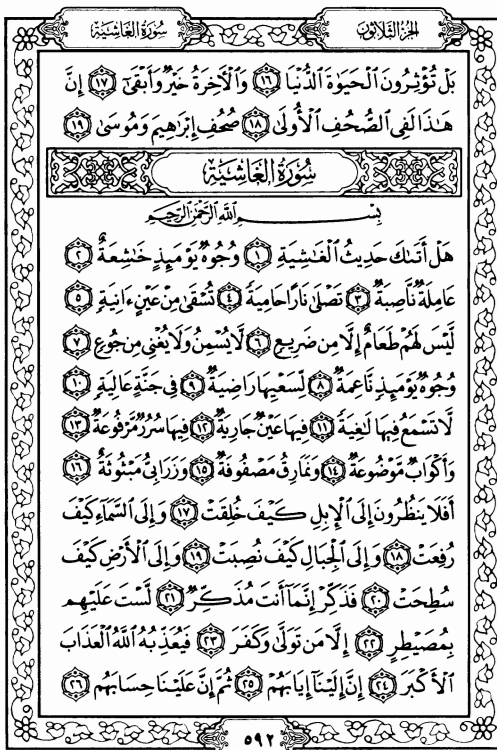 سُورَةُ الغَاشِيَةِ الجُزءُ الثَّلَاثُونَ
بَلْ تُؤْثِرُونَ ٱلْحَيَوٰةَ ٱلدُّنْيَا ١٦ وَٱلْأَخِرَةُ خَيْرٌ وَأَبْقَىٰٓ ١٧ إِنَّ
هَٰذَا لَفِى ٱلصُّحُفِ ٱلْأُولَىٰ ١٨ صُحُفِ إِبْرَٰهِيمَ وَمُوسَىٰ ١٩
سُورَةُ الغَاشِيَةِ
بِسْمِ ٱللَّهِ ٱلرَّحْمَٰنِ ٱلرَّحِيمِ
هَلْ أَتَىٰكَ حَدِيثُ ٱلْغَٰشِيَةِ ١ وُجُوهٌ يَوْمَئِذٍ خَٰشِعَةٌ ٢
عَامِلَةٌ نَّاصِبَةٌ ٣ تَصْلَىٰ نَارًا حَامِيَةً ٤ تُسْقَىٰ مِنْ عَيْنٍ ءَانِيَةٍ ٥
لَّيْسَ لَهُمْ طَعَامٌ إِلَّا مِن ضَرِيعٍ ٦ لَّا يُسْمِنُ وَلَا يُغْنِى مِن جُوعٍ ٧
وُجُوهٌ يَوْمَئِذٍ نَّاعِمَةٌ ٨ لِّسَعْيِهَا رَاضِيَةٌ ٩ فِى جَنَّةٍ عَالِيَةٍ ١٠
لَّا تَسْمَعُ فِيهَا لَٰغِيَةً ١١ فِيهَا عَيْنٌ جَارِيَةٌ ١٢ فِيهَا سُرُرٌ مَّرْفُوعَةٌ ١٣
وَأَكْوَابٌ مَّوْضُوعَةٌ ١٤ وَنَمَارِقُ مَصْفُوفَةٌ ١٥ وَزَرَابِىُّ مَبْثُوثَةٌ ١٦
أَفَلَا يَنظُرُونَ إِلَى ٱلْإِبِلِ كَيْفَ خُلِقَتْ ١٧ وَإِلَى ٱلسَّمَآءِ كَيْفَ
رُفِعَتْ ١٨ وَإِلَى ٱلْجِبَالِ كَيْفَ نُصِبَتْ ١٩ وَإِلَى ٱلْأَرْضِ كَيْفَ
سُطِحَتْ ٢٠ فَذَكِّرْ إِنَّمَآ أَنتَ مُذَكِّرٌ ٢١ لَّسْتَ عَلَيْهِم
بِمُصَيْطِرٍ ٢٢ إِلَّا مَن تَوَلَّىٰ وَكَفَرَ ٢٣ فَيُعَذِّبُهُ ٱللَّهُ ٱلْعَذَابَ
ٱلْأَكْبَرَ ٢٤ إِنَّ إِلَيْنَآ إِيَابَهُمْ ٢٥ ثُمَّ إِنَّ عَلَيْنَا حِسَابَهُم ٢٦
٥٩٢